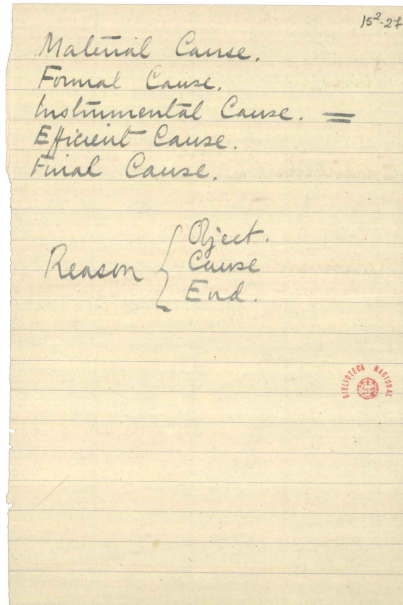 15²-27
Material Cause.
Formal Cause.
Instrumental Cause. =
Efficient Cause.
Final Cause.
Reason { Object.
Cause
End.
BIBLIOTECA NACIONAL